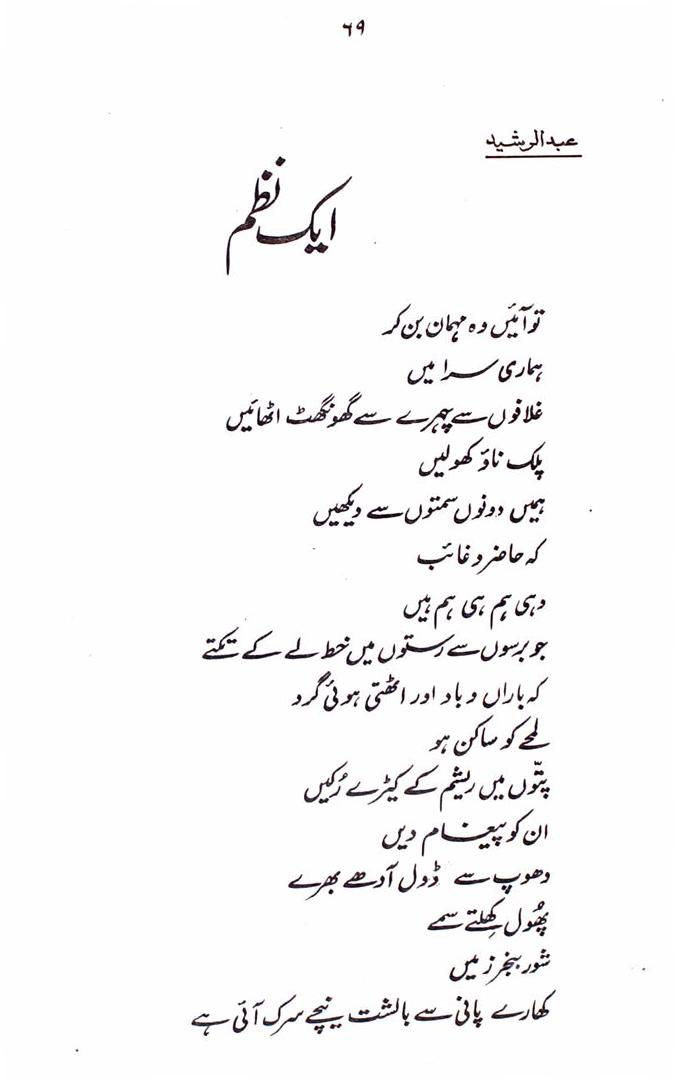 ٦٩
عبدالرشید
ایک نظم
تو آئیں وہ مہمان بن کر
ہماری سرا میں
غلافوں سے چہرے سے گھونگھٹ اٹھائیں
پلک ناؤ کھولیں
ہمیں دونوں سمتوں سے دیکھیں
کہ حاضر و غائب
وہی ہم ہی ہم ہیں
جو برسوں سے رستوں میں خط لے کے تکتے
کہ باراں و باد اور اٹھتی ہوئی گرد
لمحے کو ساکن ہو
پتّوں میں ریشم کے کیڑے رُکیں
ان کو پیغام دیں
دھوپ سے ڈول آدھے بھرے
پھُول کِھلتے سمے
شور بنجرز میں
کھارے پانی سے بالشت نیچے سرک آئی ہے